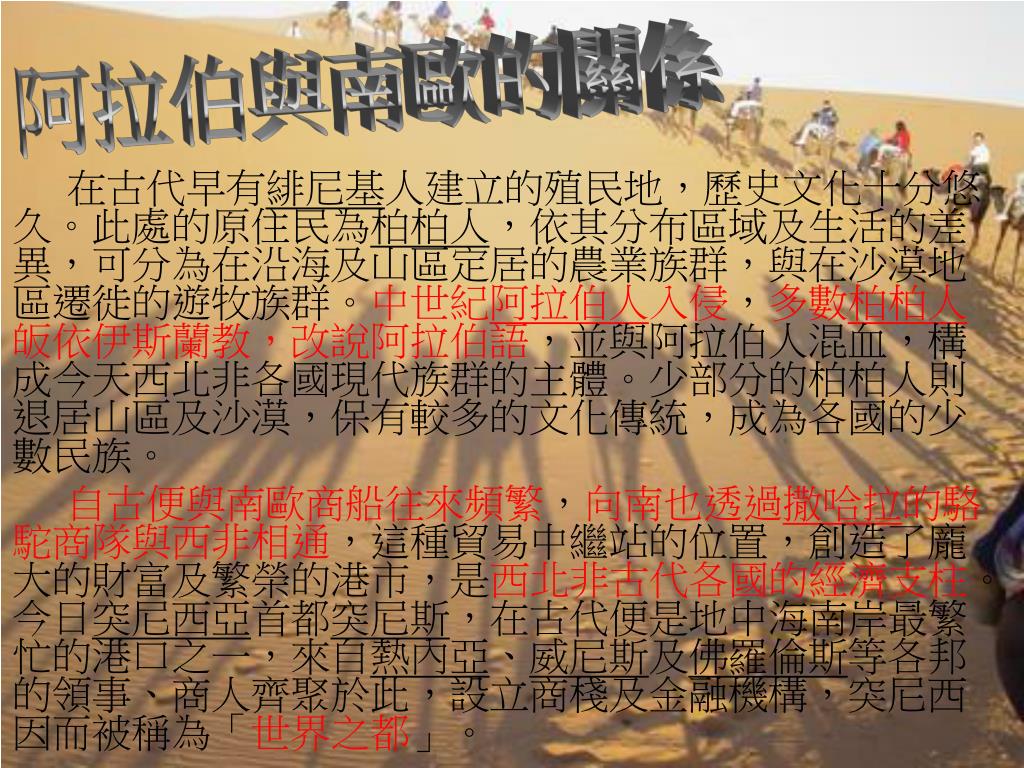 阿拉伯與南歐的關係
在古代早有緋尼基人建立的殖民地，歷史文化十分悠
久。此處的原住民為柏柏人，依其分布區域及生活的差
異，可分為在沿海及山區定居的農業族群，與在沙漠地
區遷徙的遊牧族群。中世紀阿拉伯人入侵，多數柏柏人
皈依伊斯蘭教，改說阿拉伯語，並與阿拉伯人混血，構
成今天西北非各國現代族群的主體。少部分的柏柏人則
退居山區及沙漠，保有較多的文化傳統，成為各國的少
數民族。
自古便與南歐商船往來頻繁，向南也透過撒哈拉的駱
駝商隊與西非相通，這種貿易中繼站的位置，創造了龐
大的財富及繁榮的港市，是西北非古代各國的經濟支柱。
今日突尼西亞首都突尼斯，在古代便是地中海南岸最繁
忙的港口之一，來自熱內亞、威尼斯及佛羅倫斯等各邦
的領事、商人齊聚於此，設立商棧及金融機構，突尼西
因而被稱為「世界之都」。